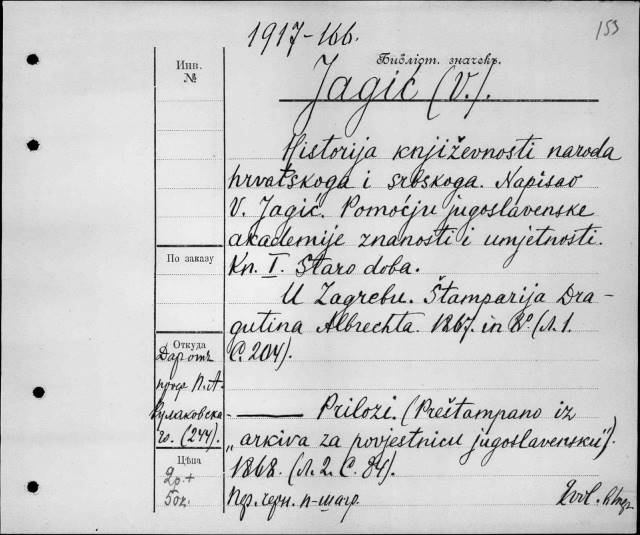 1917-166.
153
Инв.
№
Библіот. значекъ.
Jagić (V.).
Historija književnosti naroda
hrvatskoga i srbskoga. Napisao
V. Jagić. Pomoćju jugoslavenske
akademije znanosti i umjetnosti.
По заказу
Kn. I. Staro doba.
U Zagrebu. Štamparija Dra-
gutina Albrechta. 1867. in 8º. (Л. 1.
С. 204).
Откуда
Даръ отъ
проф. П. А.
Кулаковска-
го. (244).
Prilozi. (Preštampano iz
„arkiva za povjestnicu jugoslavensku").
1868. (Л. 2. С. 84).
Цѣна
2р. +
50к.
Пер. черн. п-шагр.